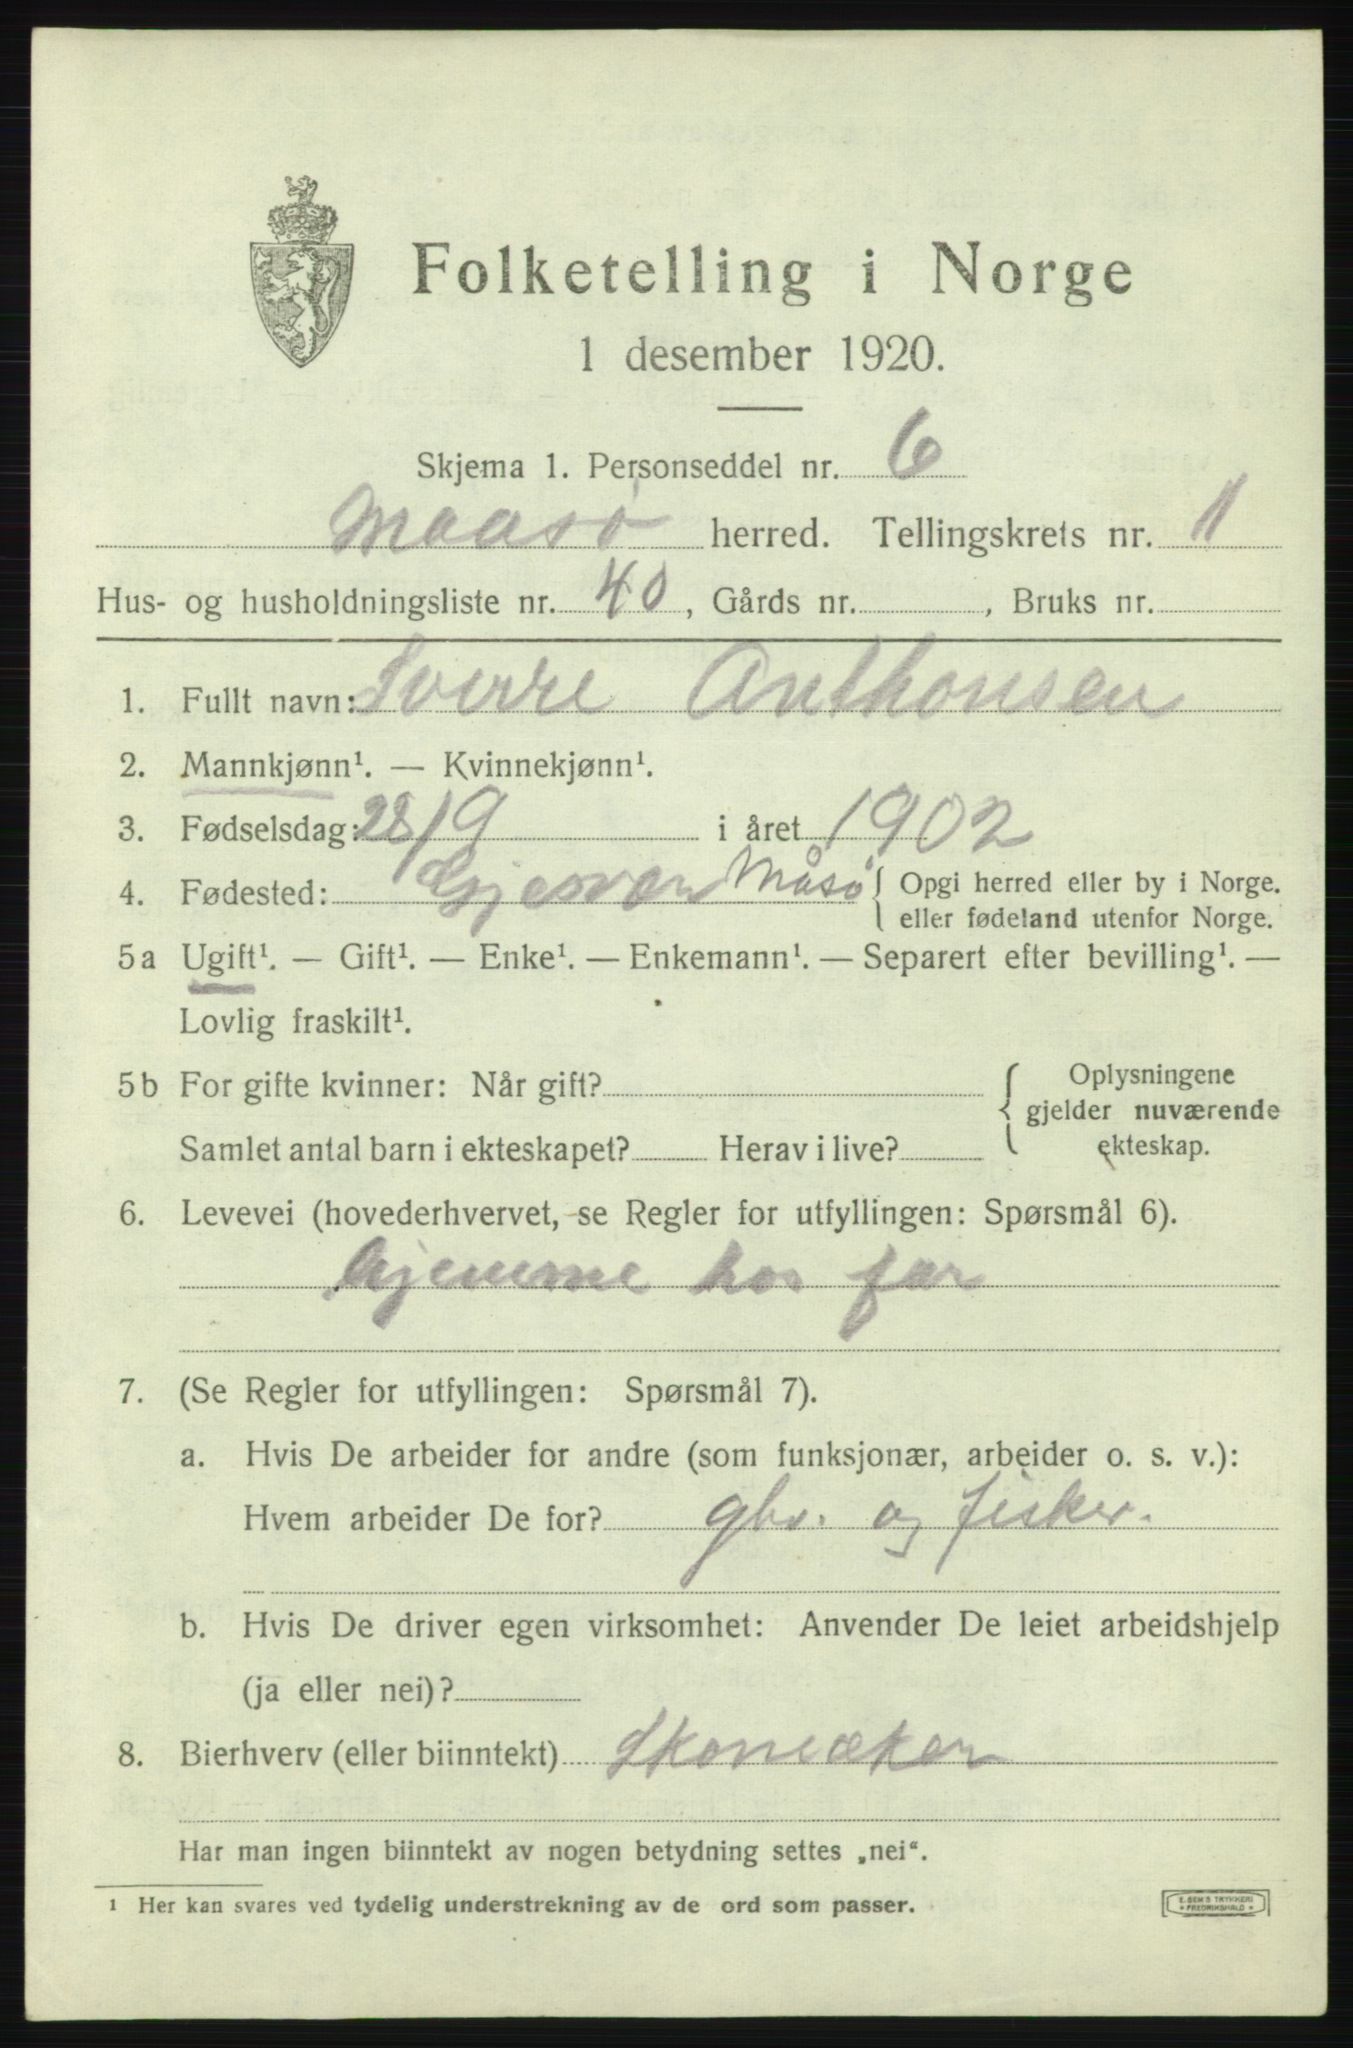 Folketelling i Norge
1 desember 1920.
Skjema 1. Personseddel nr. 6
Maasø herred. Tellingskrets nr. 11
Hus- og husholdningsliste nr. 40, Gårds nr. , Bruks nr.
1. Fullt navn: Sverre Anthonsen
2. Mannkjønn¹. — Kvinnekjønn¹.
3. Fødselsdag: 28/9 i året 1902
4. Fødested: Gjesvær Måsø { Opgi herred eller by i Norge.
eller fødeland utenfor Norge.
5a Ugift¹. — Gift¹. — Enke¹. — Enkemann¹. — Separert efter bevilling¹. —
Lovlig fraskilt¹.
5b For gifte kvinner: Når gift?
Samlet antal barn i ekteskapet? Herav i live?
{ Oplysningene
gjelder nuværende
ekteskap.
6. Levevei (hovederhvervet, se Regler for utfyllingen: Spørsmål 6).
hjemme hos far
7. (Se Regler for utfyllingen: Spørsmål 7).
a. Hvis De arbeider for andre (som funksjonær, arbeider o. s. v.):
Hvem arbeider De for? gbr. og fisker.
b. Hvis De driver egen virksomhet: Anvender De leiet arbeidshjelp
(ja eller nei)?
8. Bierhverv (eller biinntekt)
Har man ingen biinntekt av nogen betydning settes „nei“.
¹ Her kan svares ved tydelig understrekning av de ord som passer.
E. SEM'S TRYKKERI
* FREDRIKSHALD *